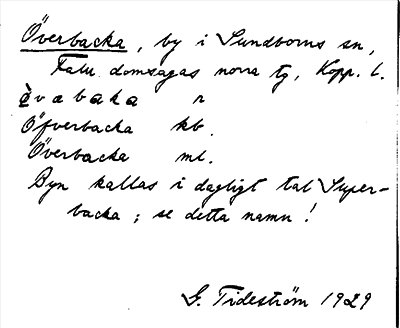 Överbacka, by i Sundborns sn,
Falu domsagas norra tg, Kopp. l.
è̀vabaka n
Öfverbacka kb.
Överbacka ml.
Byn kallas i dagligt tal Super-
backa; se detta namn!
G. Tideström 1929